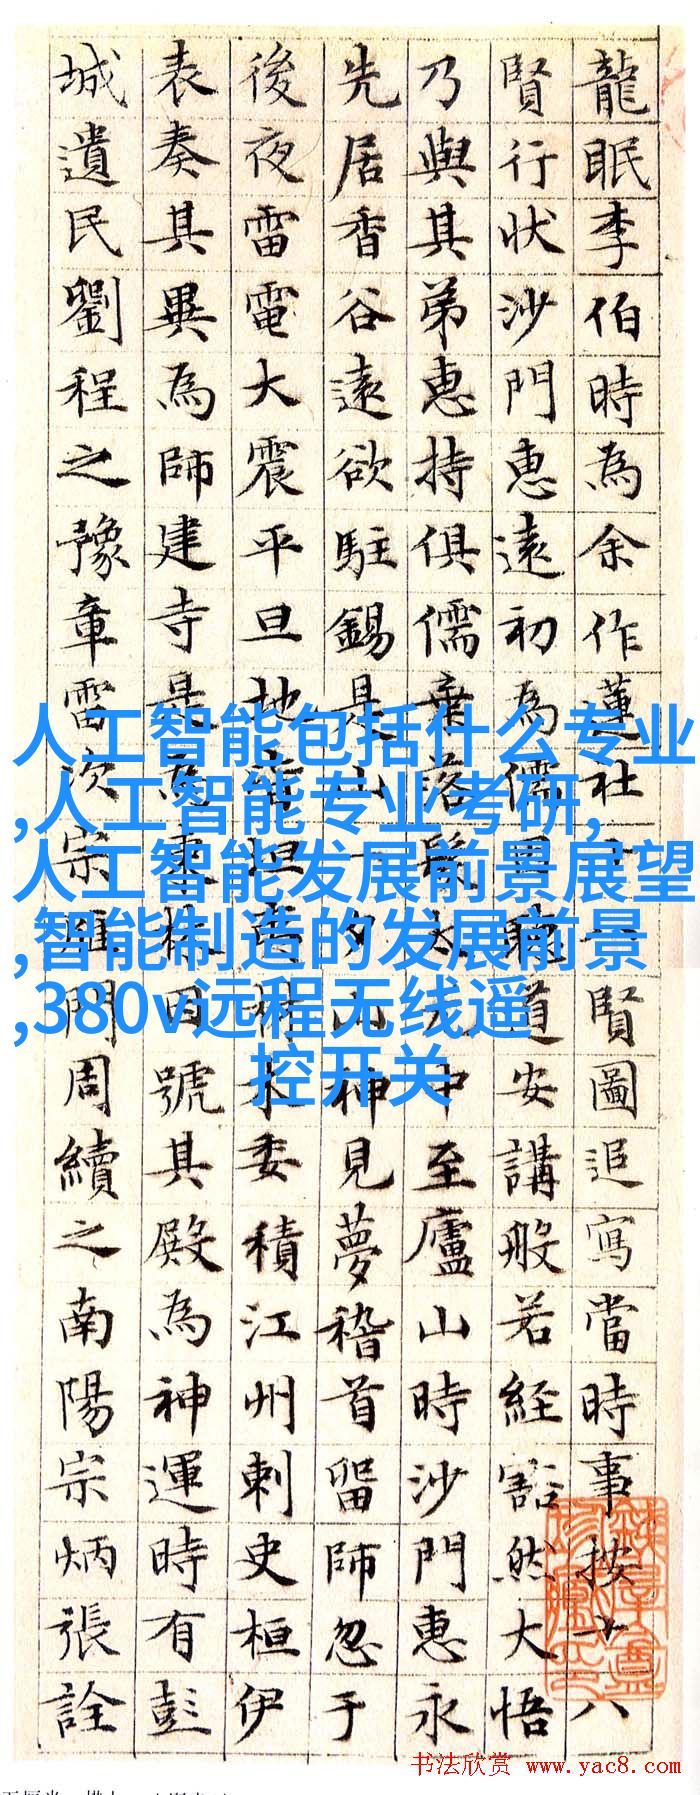 龍眠李伯時為余作蓮社賢圖追寫當時事按十八
賢行狀沙門惠遠初為儒道安講般若經豁然大悟
乃與其弟惠持俱儒棄落髮太中至廬山時沙門惠永
先居香谷遠欲駐錫是山夕神見夢稽首留師忽于
後夜雷電大震平旦地坦委積江州刺史桓伊
表奏其異為師建寺是為東林因號其殿為神運時有彭
城遺民劉程之豫章雷次宗雁門周續之南陽宗炳張詮
人工智能包括什么专业
,人工智能专业考研,
人工智能发展前景展望
,智能制造的发展前景
,380v远程无线遥
控开关
书法欣赏 www.yac8.com